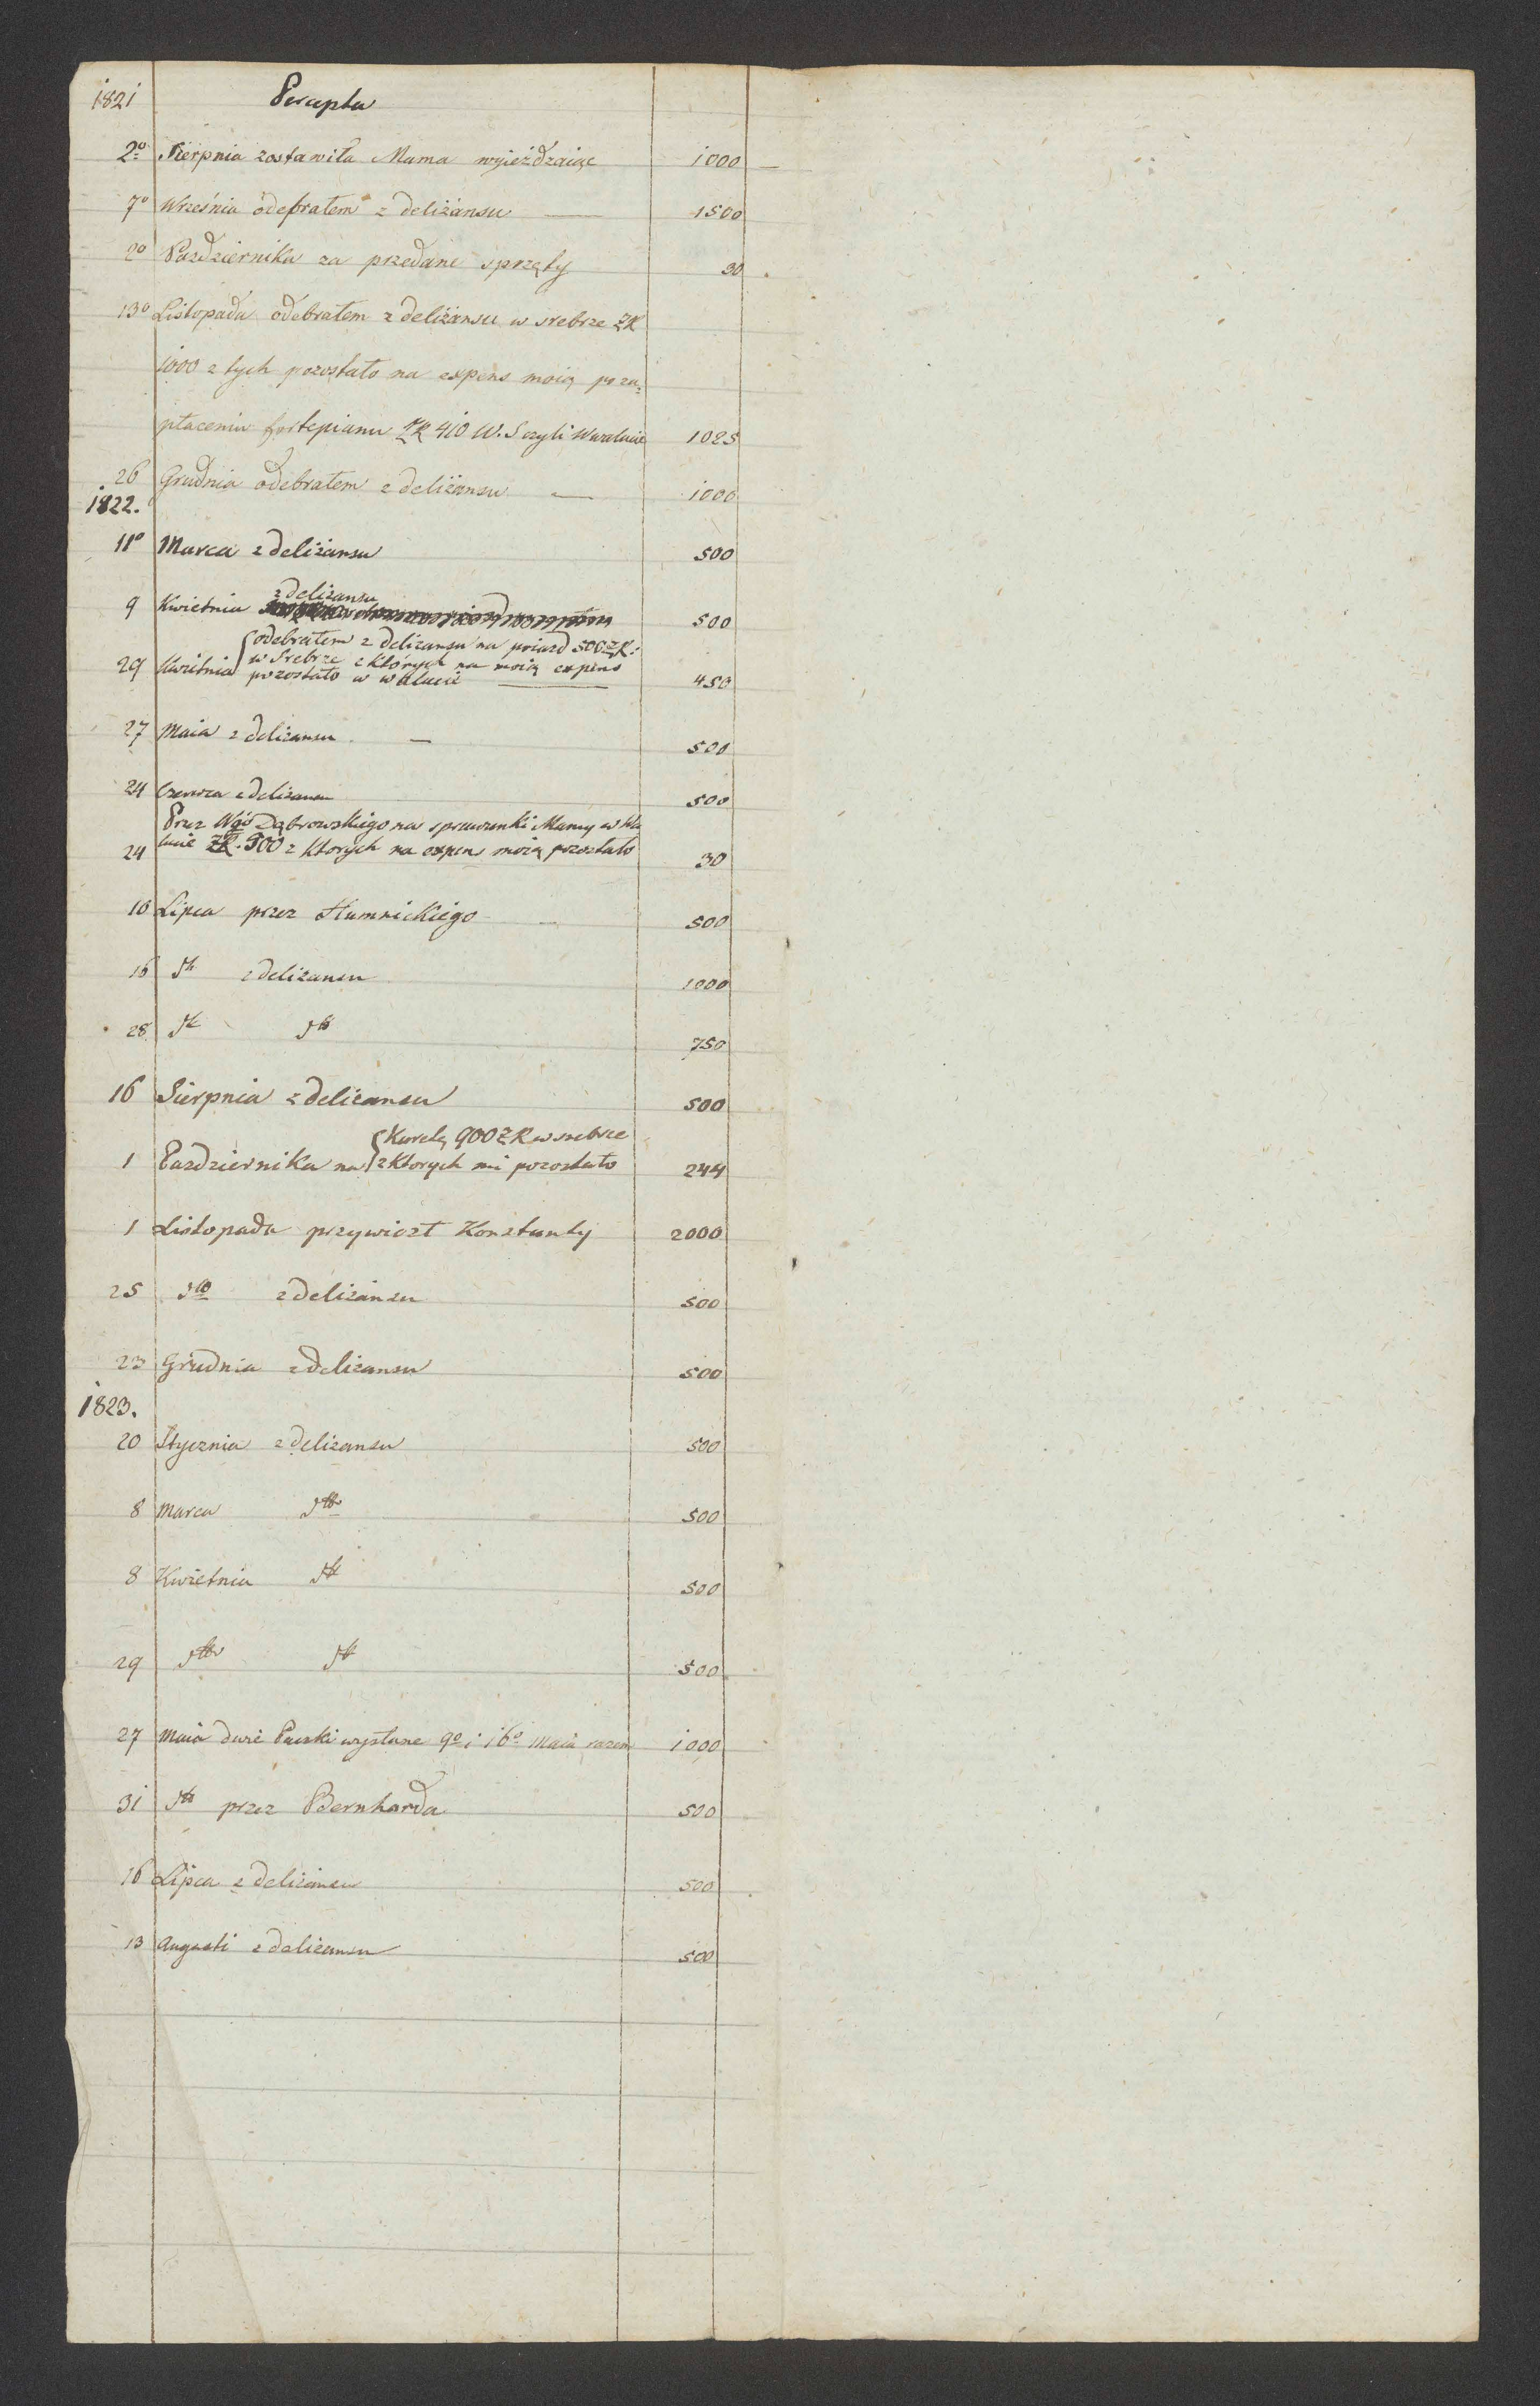 1821 Percepta
2º Sierpnia zostawiła Mama wyieżdzaiąc 1000
7º Września odebrałem z deliżansu 1500
2º Pazdziernika za przedane sprzęty 30
13º Listopada odebrałem z deliżansu w srebrze ZR
1000 z tych pozostało na expens moią po za=
płaceniu fortepianu ZR 410 W. S czyli w walucie 1025
26 Grudnia odebrałem z deliżansu 1000
1822.
11º Marca z deliżansu 500
9 Kwietnia z deliżansu 500
odebrałem z deliżansu na poiazd 500 ZR:
w Srebrze z których na moią expens
29 Kwietnia pozostało w walucie 450
27 Maia z deliżansu 500
24 Czerwca z deliżansu 500
Przez Wgo Dąbrowskiego na sprawunki Mamy w Wa
24 lucie ZR. 900 z ktorych na expen moią pozostało 30
10 Lipca przez Humnickiego 500
16 dto z deliżansu 1000
28 dto dto 750
16 Sierpnia z deliżansu 500
Karetę 900 ZR w srebrze
1 Pazdziernika na z ktorych mi pozostało 244
1 Listopada przywiozł Konstanty 2000
25 dto z deliżansu 500
23 Grudnia z deliżansu 500
1823.
20 Stycznia z deliżansu 500
8 Marca dto 500
8 Kwietnia dto 500
29 dto dto 500
27 Maia dwie Paczki wysłane 9º i 16º Maia razem 1000
31 dto przez Bernharda 500
16 Lipca z deliżansu 500
13 Augusti z deliżansu 500